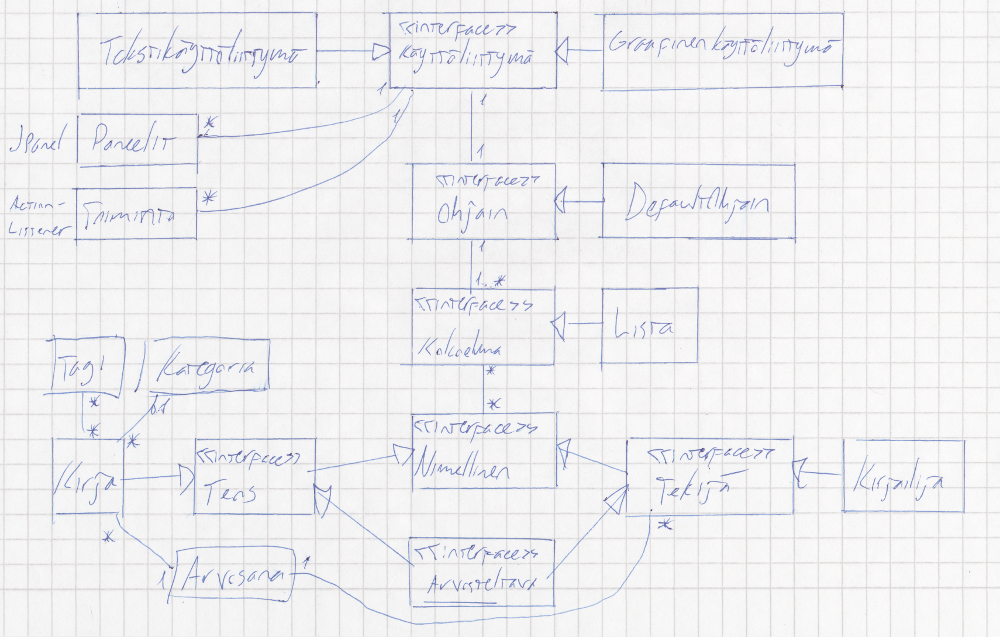 Tekstikäyttöliittymä
<<interface>>
Käyttöliittymä
Graafinen käyttöliittymä
1
1
1
JPanel
Paneelit
*
Action-
Listener
Toiminta
*
1
<<interface>>
Ohjain
DefaultOhjain
1
1..*
<<interface>>
Kokoelma
Lista
*
Tagi
Kategoria
*
*
*
*
<<interface>>
Nimellinen
Kirja
<<interface>>
Teos
<<interface>>
Tekijä
Kirjailija
*
*
1
Arvosana
1
<<interface>>
Arvosteltava